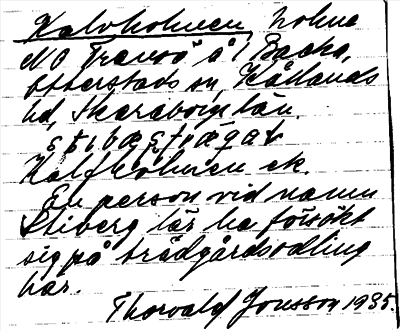 Kalvholmen, holme
NO Tranvö å 1 Backa,
Otterstads sn, Kållands
hd, Skaraborgs län.
Kalfholmen ek.
En person vid namn
Stiberg lär ha försökt
sig på trädgårdsodling
här.
Thorvald Jonsson 1935.